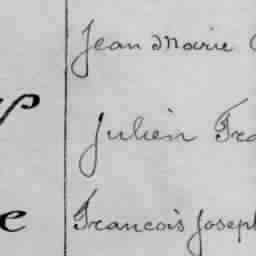 Jean Marie
Julien
François Joseph